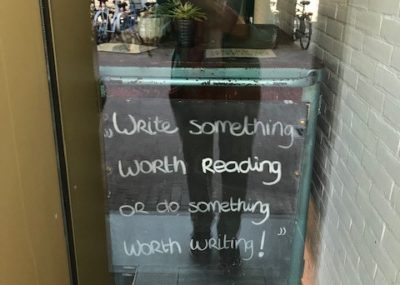 „Write something
WORTH Reading
OR do something
WORTH WRITING!”